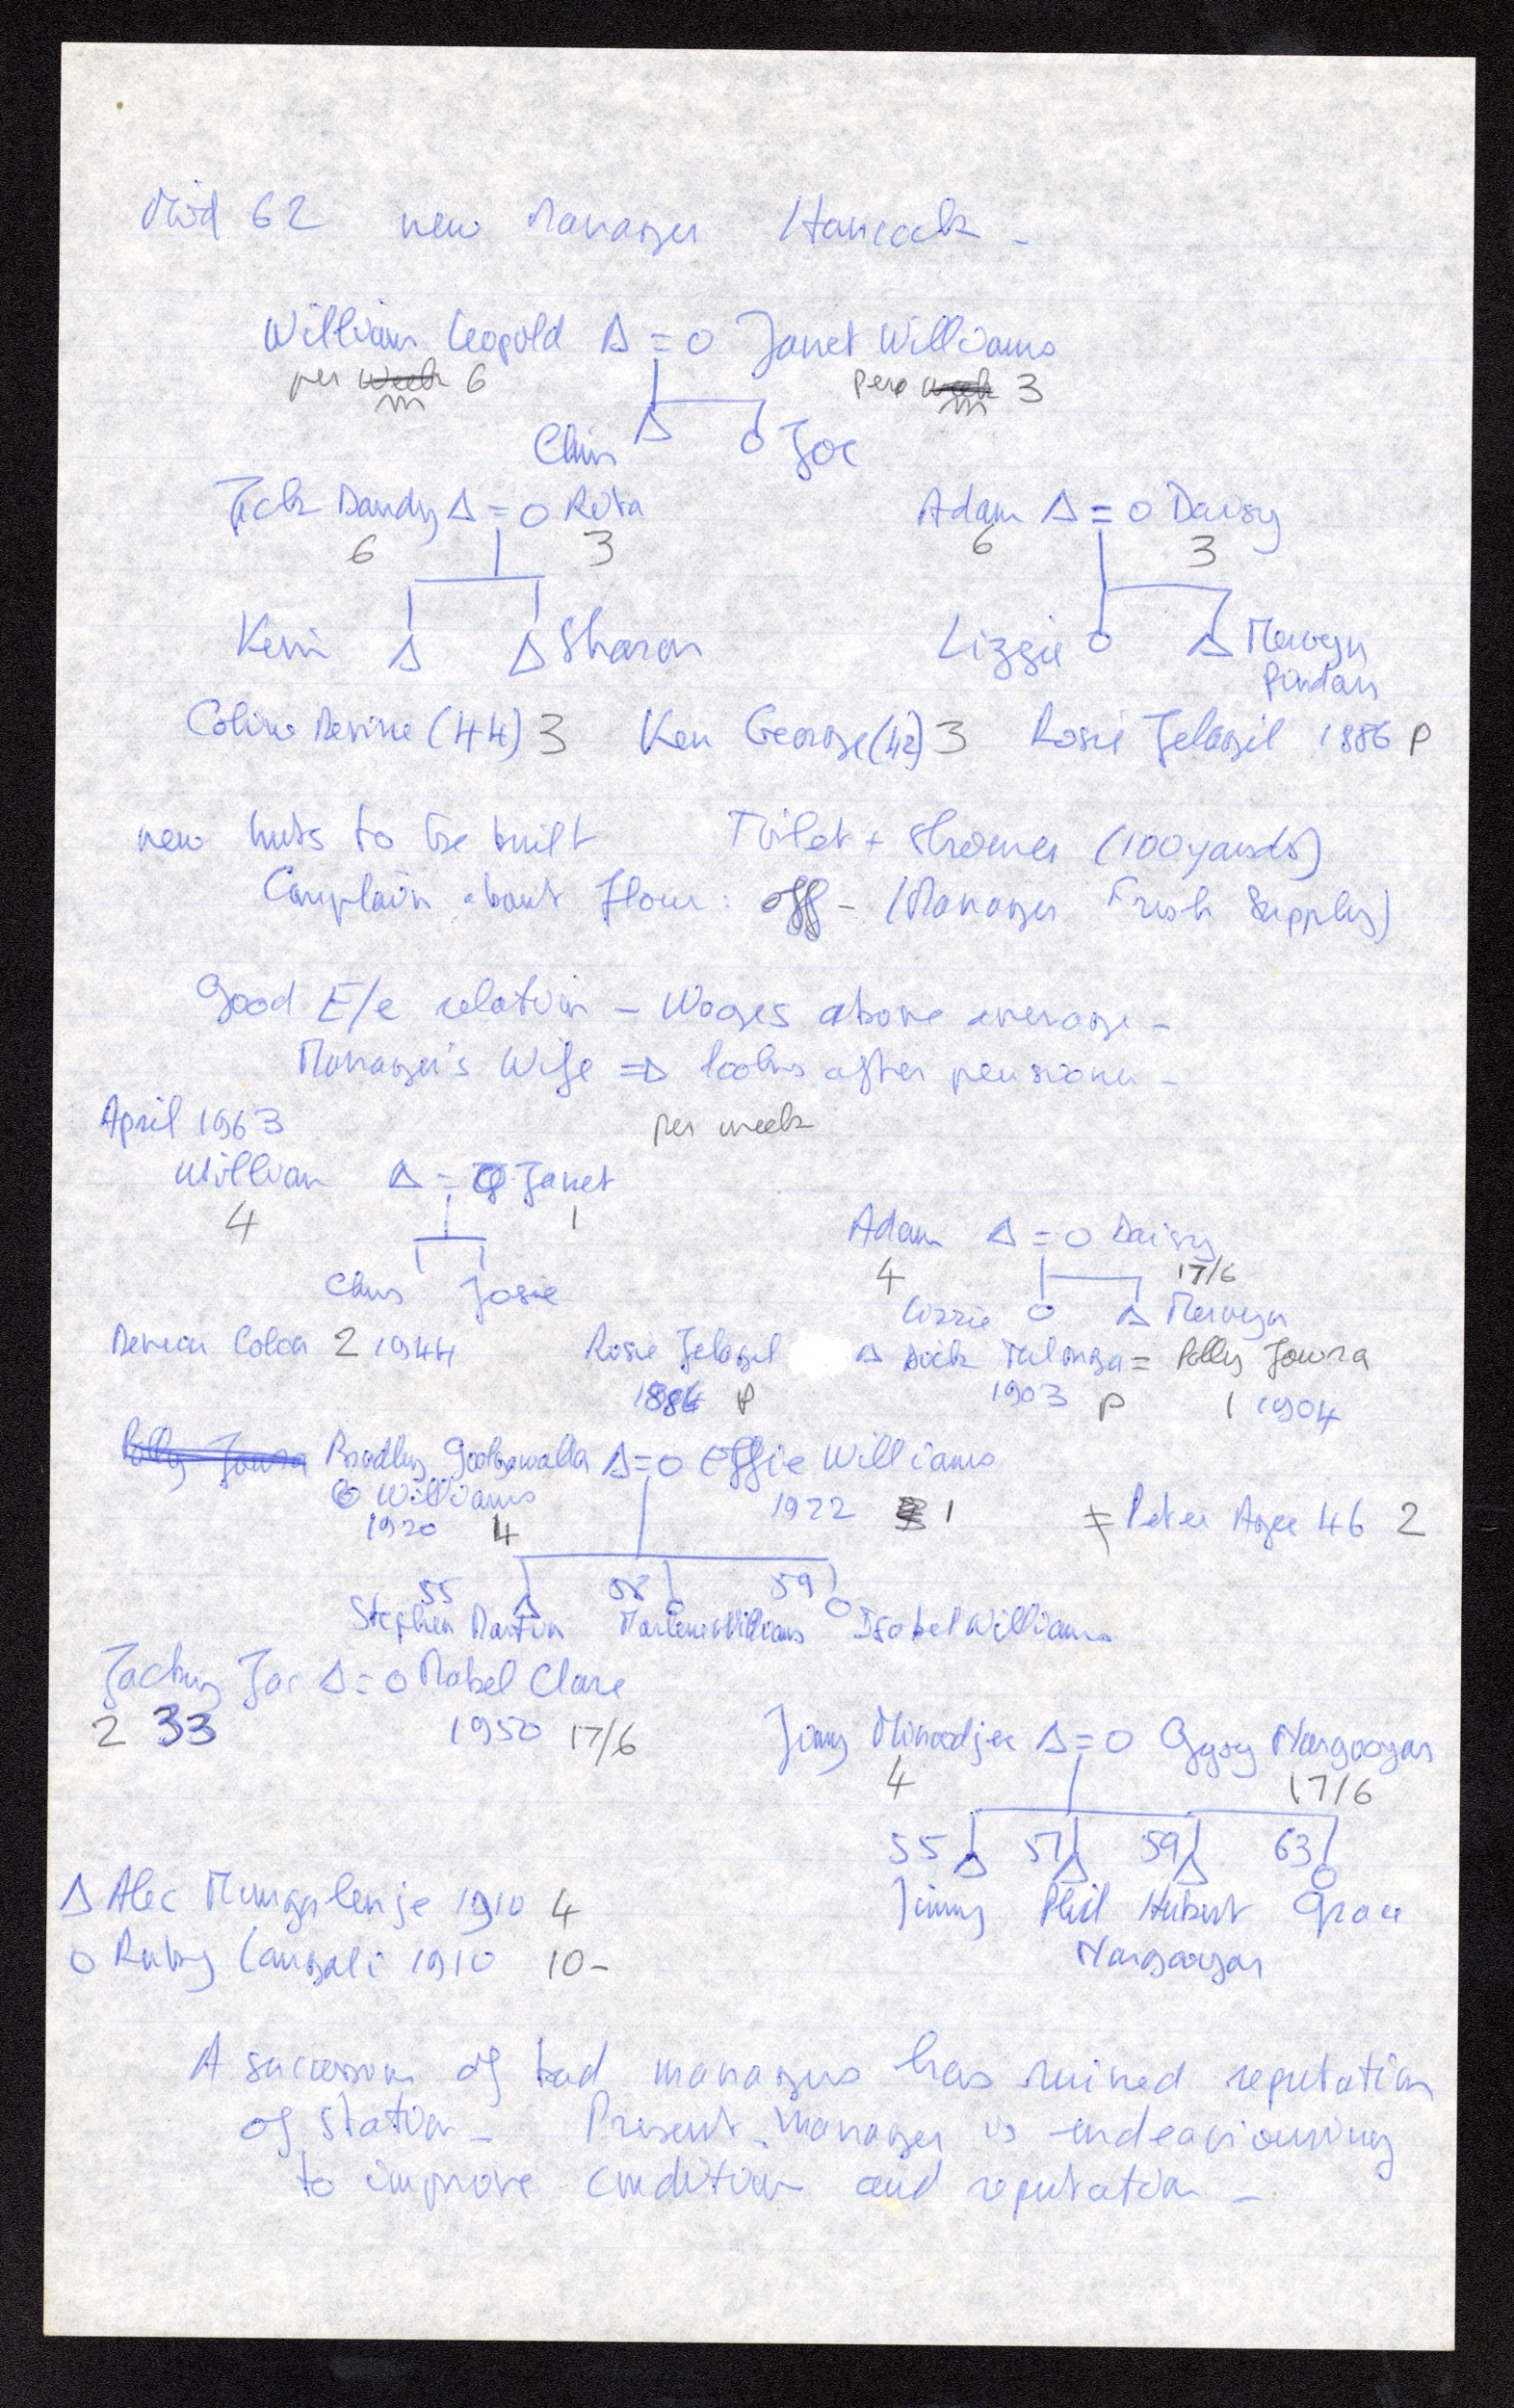 Mid 62 new Manager Hancock -
William Leopold Δ = O Janet Williams
per ~~week~~ m 6 per ~~week~~ m 3
Chris Δ O Joe
Jack Dandy Δ = O Rita Adam Δ = O Daisy
6 3 6 3
Kevin Δ Δ Sharon Lizzie O Δ Mervyn
Pindan
Colin Devine (44) 3 Ken George (42) 3 Rosie Jelagil 1886 P
new huts to be built Toilet + Shower (100 yards)
Complain about flour: off - (Manager Fresh Supply)
Good E/e relation - Wages above average -
Manager's Wife ⇒ looks after pensioner -
April 1963 per week
William Δ = O Janet
4 1
Adam Δ = O Daisy
4 17/6
Chris Josie
Lizzie O Δ Mervyn
2 1944 Rosie Jelagil Δ Dick = Polly Jowra
1886 P 1903 P 1 1904
~~Polly Jowra~~ Δ=O Effie Williams
Williams 1922 1 Peter Agee 46 2
1920 4
55 58 59
Stephen Martin Δ Marlene Williams O Isobel Williams
Jacky Joe Δ=O Mabel Clare
2 33 1950 17/6
Jimmy Minoodjee Δ=O Gypsy Nargoogan
4 17/6
55 Δ 57 Δ 59 Δ 63 O
Jimmy Phil Hubert Grace
Nargoogan
Δ Alec 1910 4
O Ruby 1910 10-
A succession of bad managers has ruined reputation
of Station - Present manager is endeavouring
to improve condition and reputation -